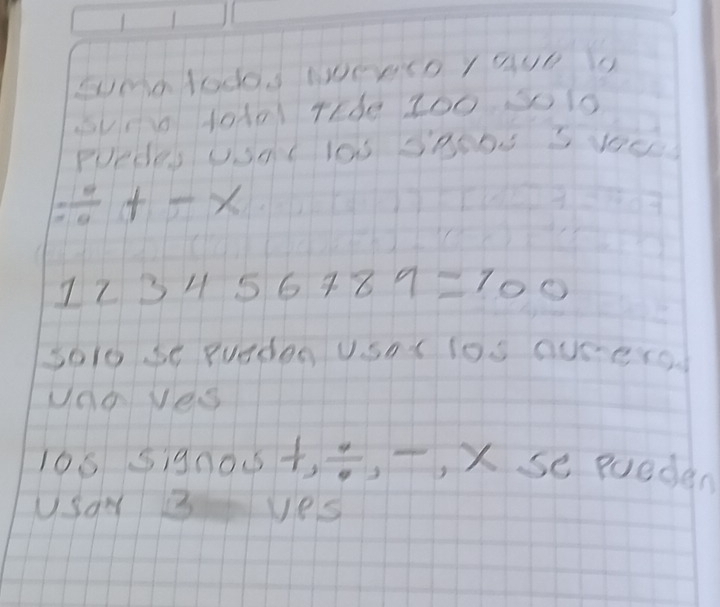 suma todos numero y que la
suma total te de 100 solo
puedes usar los signos 3 vec
÷ + - x
1 2 3 4 5 6 7 8 9 = 100
solo se pueden usar los numeros
una ves
los signos +, ÷, -, x se pueden
usar 3 ves